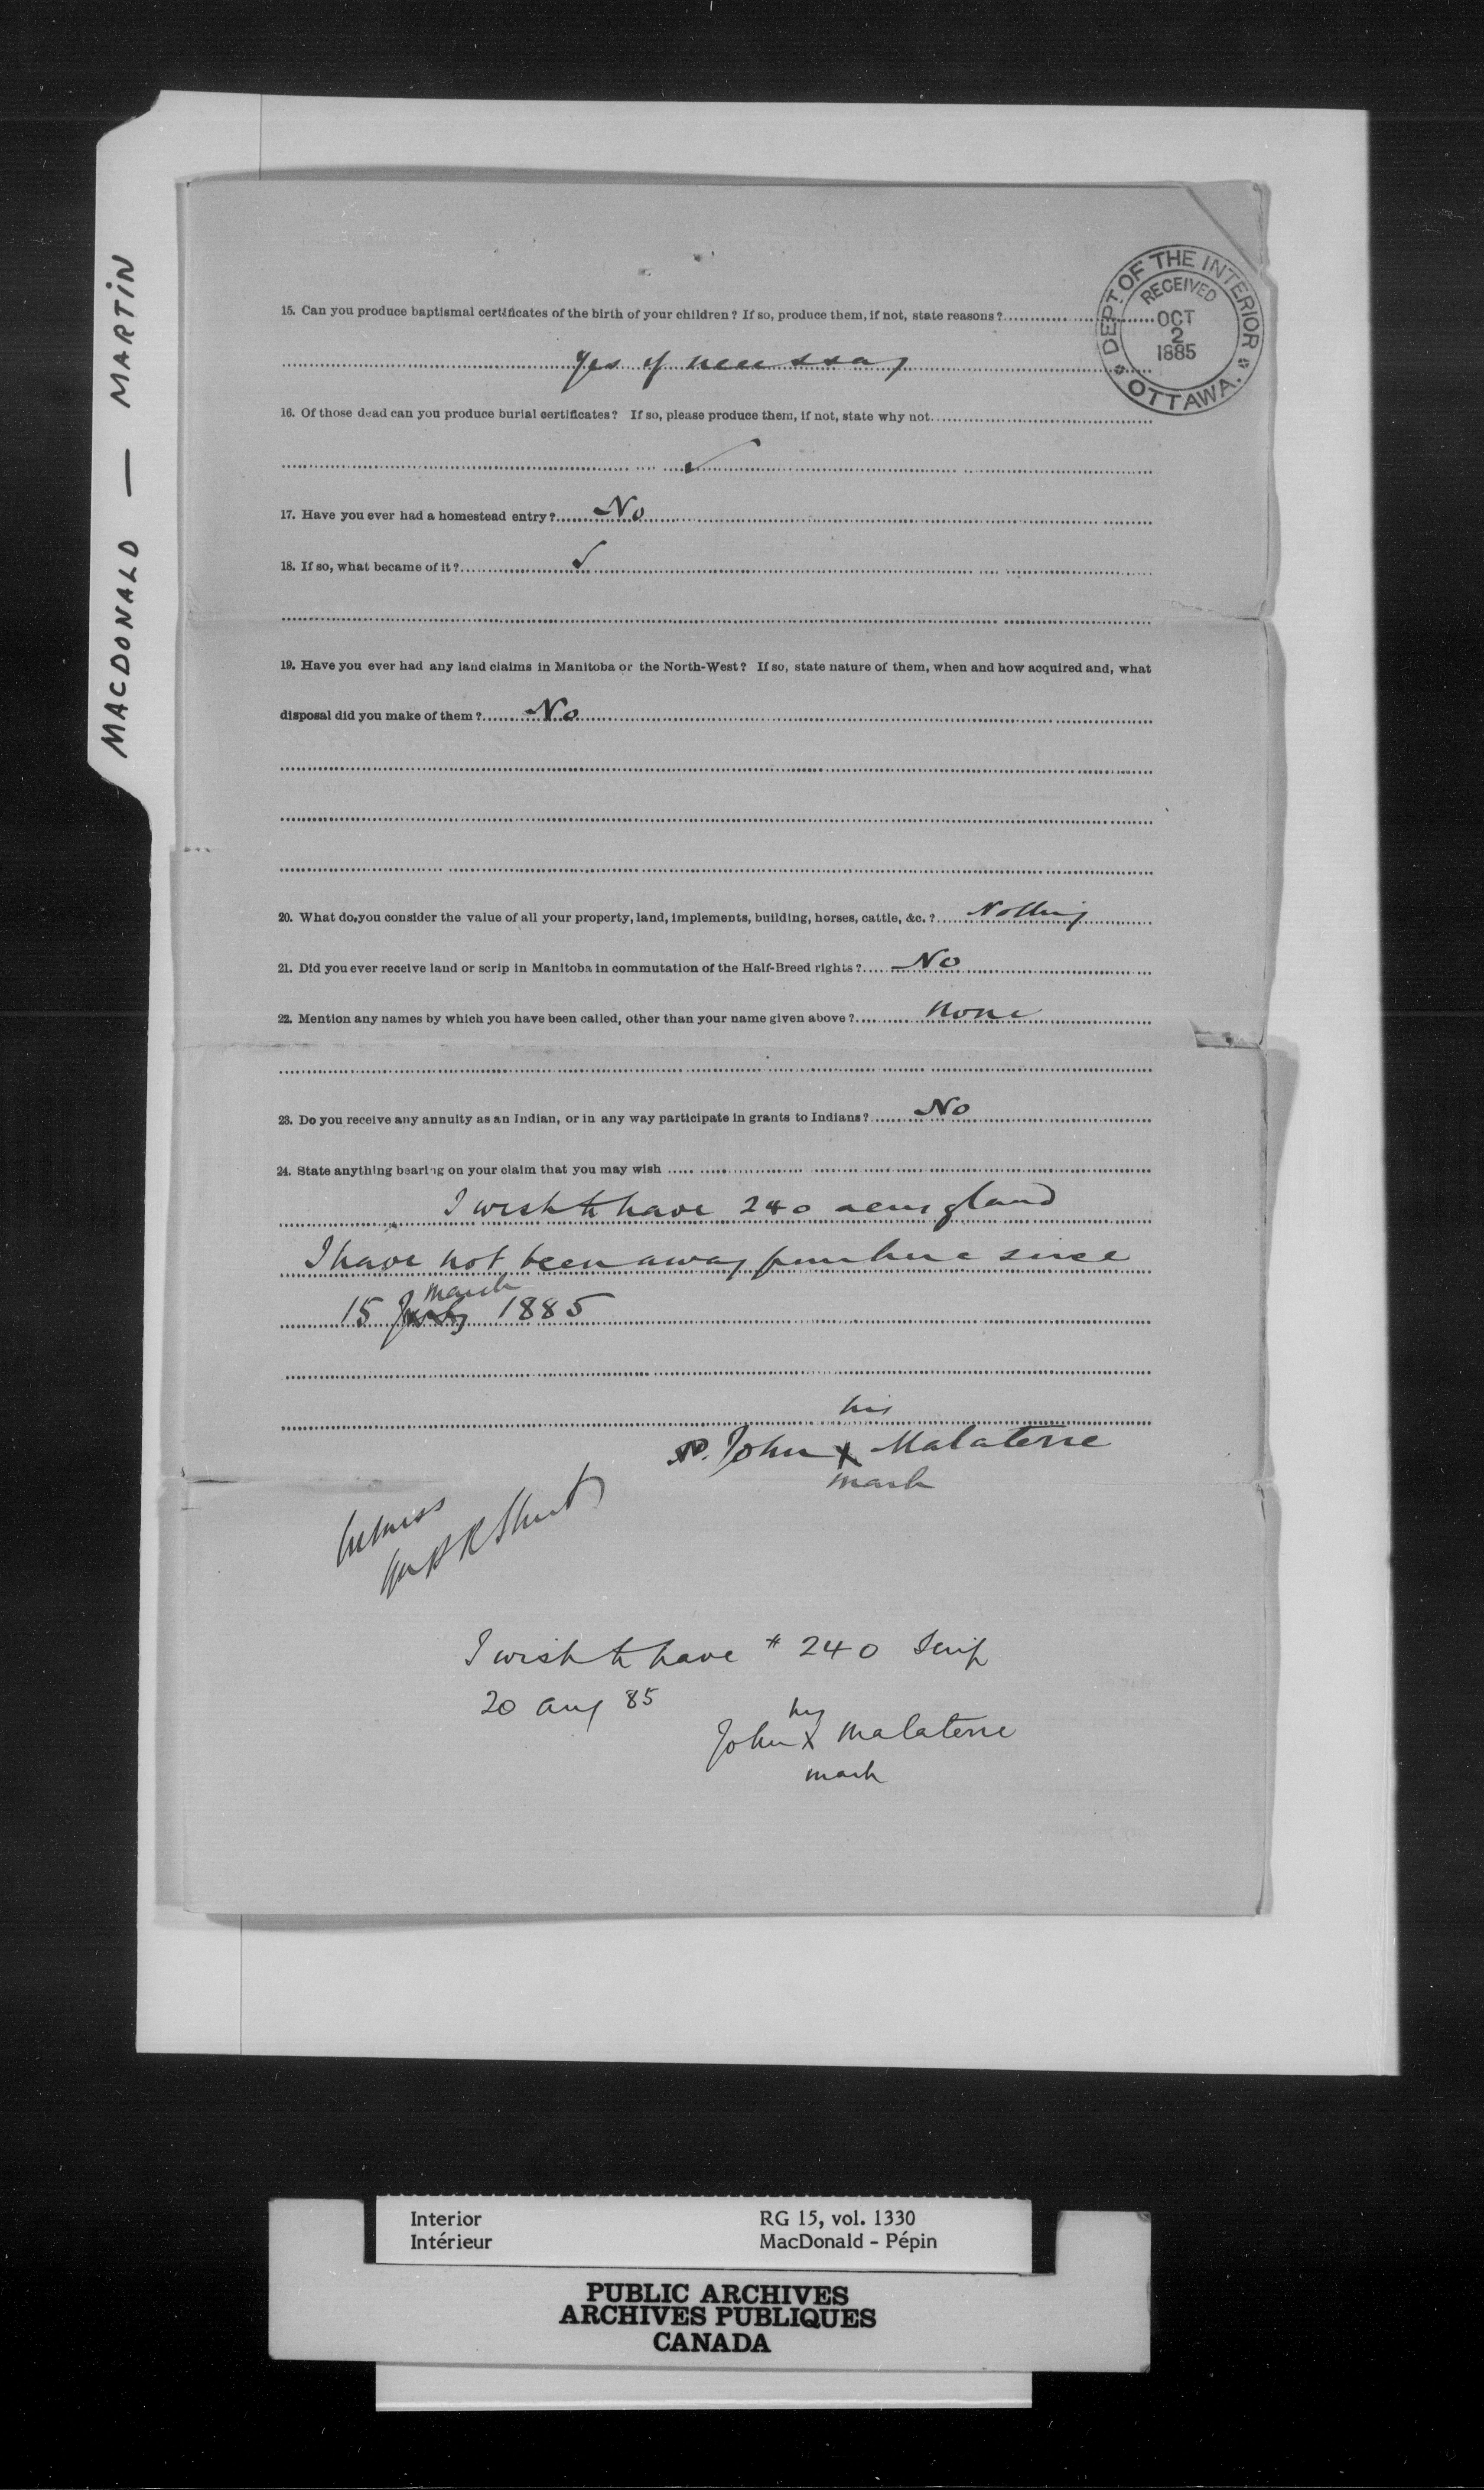 MACDONALD — MARTIN
DEPT. OF THE INTERIOR
RECEIVED
OCT
2
1885
OTTAWA.
15. Can you produce baptismal certificates of the birth of your children? If so, produce them, if not, state reasons?
Yes if necessay
16. Of those dead can you produce burial certificates? If so, please produce them, if not, state why not
✓
17. Have you ever had a homestead entry? No
18. If so, what became of it? ✓
19. Have you ever had any land claims in Manitoba or the North-West? If so, state nature of them, when and how acquired and, what
disposal did you make of them? No
20. What do you consider the value of all your property, land, implements, building, horses, cattle, &c.? Nothing
21. Did you ever receive land or scrip in Manitoba in commutation of the Half-Breed rights? No
22. Mention any names by which you have been called, other than your name given above? none
23. Do you receive any annuity as an Indian, or in any way participate in grants to Indians? No
24. State anything bearing on your claim that you may wish
I wish to have 240 acres of land
I have not been away from here since
march
15 1885
his
John X Malaterre
mark
Witness
I wish to have $ 240 Scrip
20 Aug 85
his
John X Malaterre
mark
Interior RG 15, vol. 1330
Intérieur MacDonald - Pépin
PUBLIC ARCHIVES
ARCHIVES PUBLIQUES
CANADA